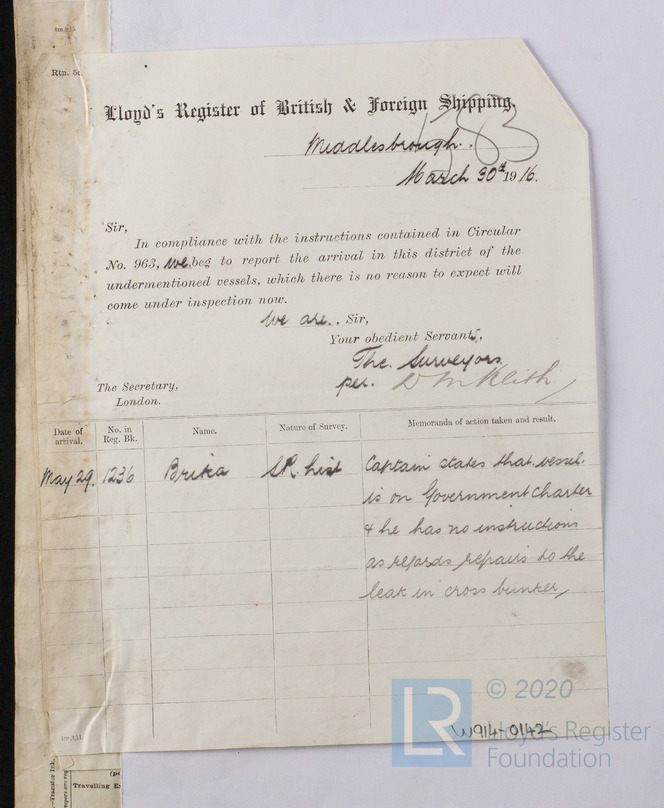 6m,9,15.
Rtn. 5c
Lloyd's Register of British & Foreign Shipping.
1383
Middlesbrough.
March 30th 1916.
Sir,
In compliance with the instructions contained in Circular
No. 963, we beg to report the arrival in this district of the
undermentioned vessels, which there is no reason to expect will
come under inspection now.
We are, Sir,
Your obedient Servants,
The Surveyors
per. D M Keith
The Secretary,
London.
Date of arrival. No. in Reg. Bk. Name. Nature of Survey. Memoranda of action taken and result.
May 29. 1236 Brika SR. list Captain states that vessel
is on Government Charter
& he has no instructions
as regards repairs to the
leak in cross bunker,
1m,3,14.
© 2020
LR Lloyd's Register
Foundation
W914-0142
Travelling Ex